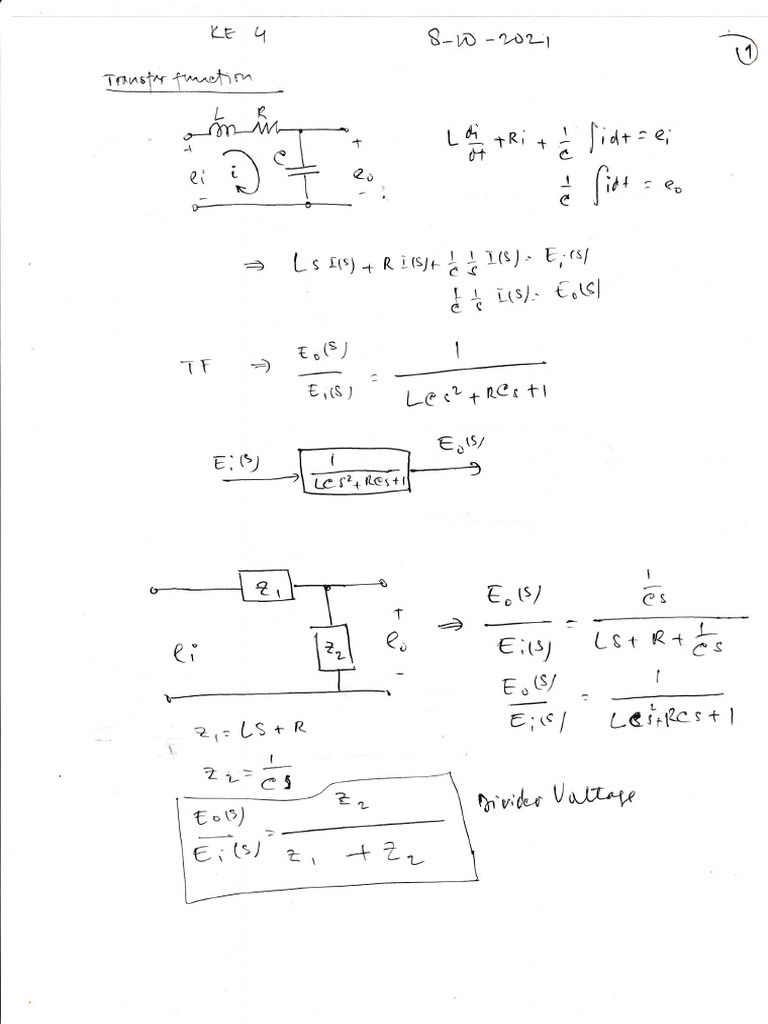 KE 4 8-10-2021 1
Transfer function
L R
+ ei - i C + eo -
L di/dt + Ri + 1/C ∫idt = ei
1/C ∫idt = eo
⇒ Ls I(s) + R I(s) + 1/C 1/s I(s) = Ei(s)
1/C 1/s I(s) = Eo(s)
TF ⇒ Eo(s)/Ei(s) = 1/(LCs²+RCs+1)
Ei(s) 1/(LCs²+RCs+1) Eo(s)
z1
ei z2 + eo -
⇒ Eo(s)/Ei(s) = (1/Cs)/(Ls + R + 1/Cs)
Eo(s)/Ei(s) = 1/(LCs²+RCs+1)
z1 = LS + R
z2 = 1/Cs
Eo(s)/Ei(s) = z2/(z1 + z2)
Divider Voltage